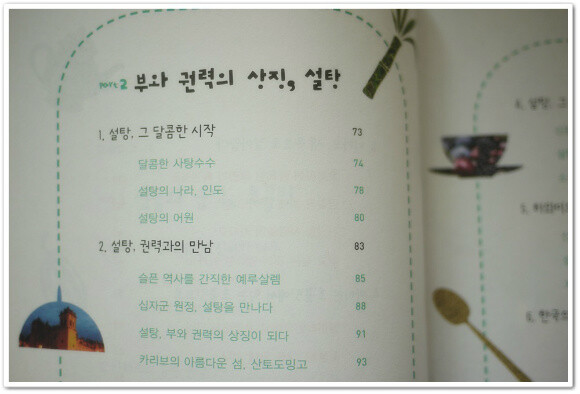 part 2 부와 권력의 상징, 설탕
1. 설탕, 그 달콤한 시작 73
달콤한 사탕수수 74
설탕의 나라, 인도 78
설탕의 어원 80
2. 설탕, 권력과의 만남 83
슬픈 역사를 간직한 예루살렘 85
십자군 원정, 설탕을 만나다 88
설탕, 부와 권력의 상징이 되다 91
카리브의 아름다운 섬, 산토도밍고 93
설탕, 그
5.
6. 한국의